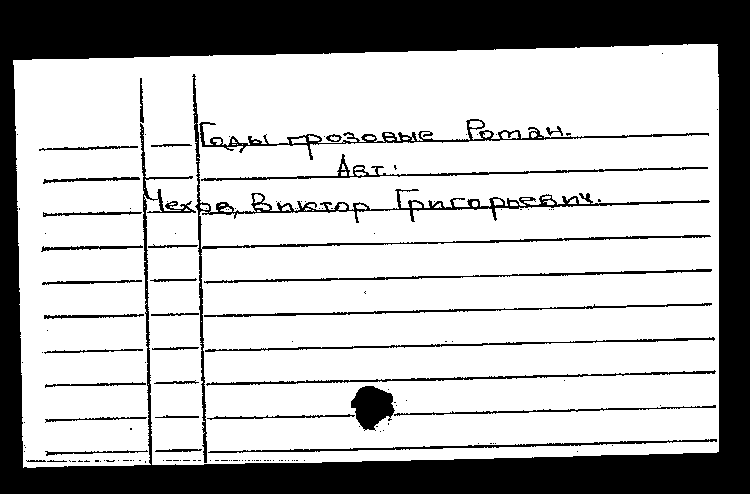 Годы грозовые Роман.
Авт.:
Чехов, Виктор Григорьевич.